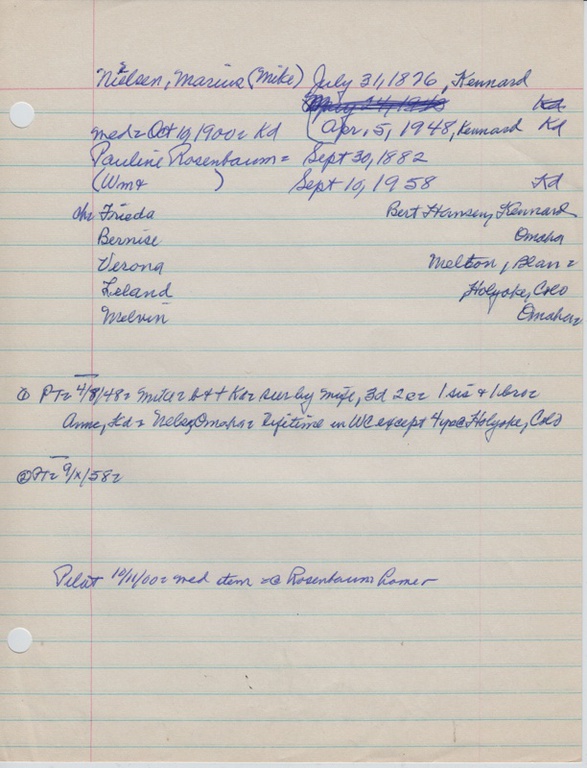 Nielsen, Marius (Mike) July 31, 1876, Kennard
Kd
med = Oct 10, 1900 = Kd (Apr, 5, 1948, Kennard Kd
Pauline Rosenbaum = Sept 30, 1882
(Wm + ) Sept 10, 1958 Kd
ch Frieda Bert Hansen, Kennard
Bernise Omaha
Verona Melton, Blair =
Leland Holyoke, Colo
Melvin Omaha =
① PT = 4/8/48 = Mike = b + t Kd = sur by wife, 3d 2s = 1 sis + 1 bro =
Anne, Kd = Nels, Omaha = Lifetime in WC except 4 yrs @ Holyoke, Colo
② PT = 9/x/58 =
Pilot 10/11/00 = med item = @ Rosenbaum home =